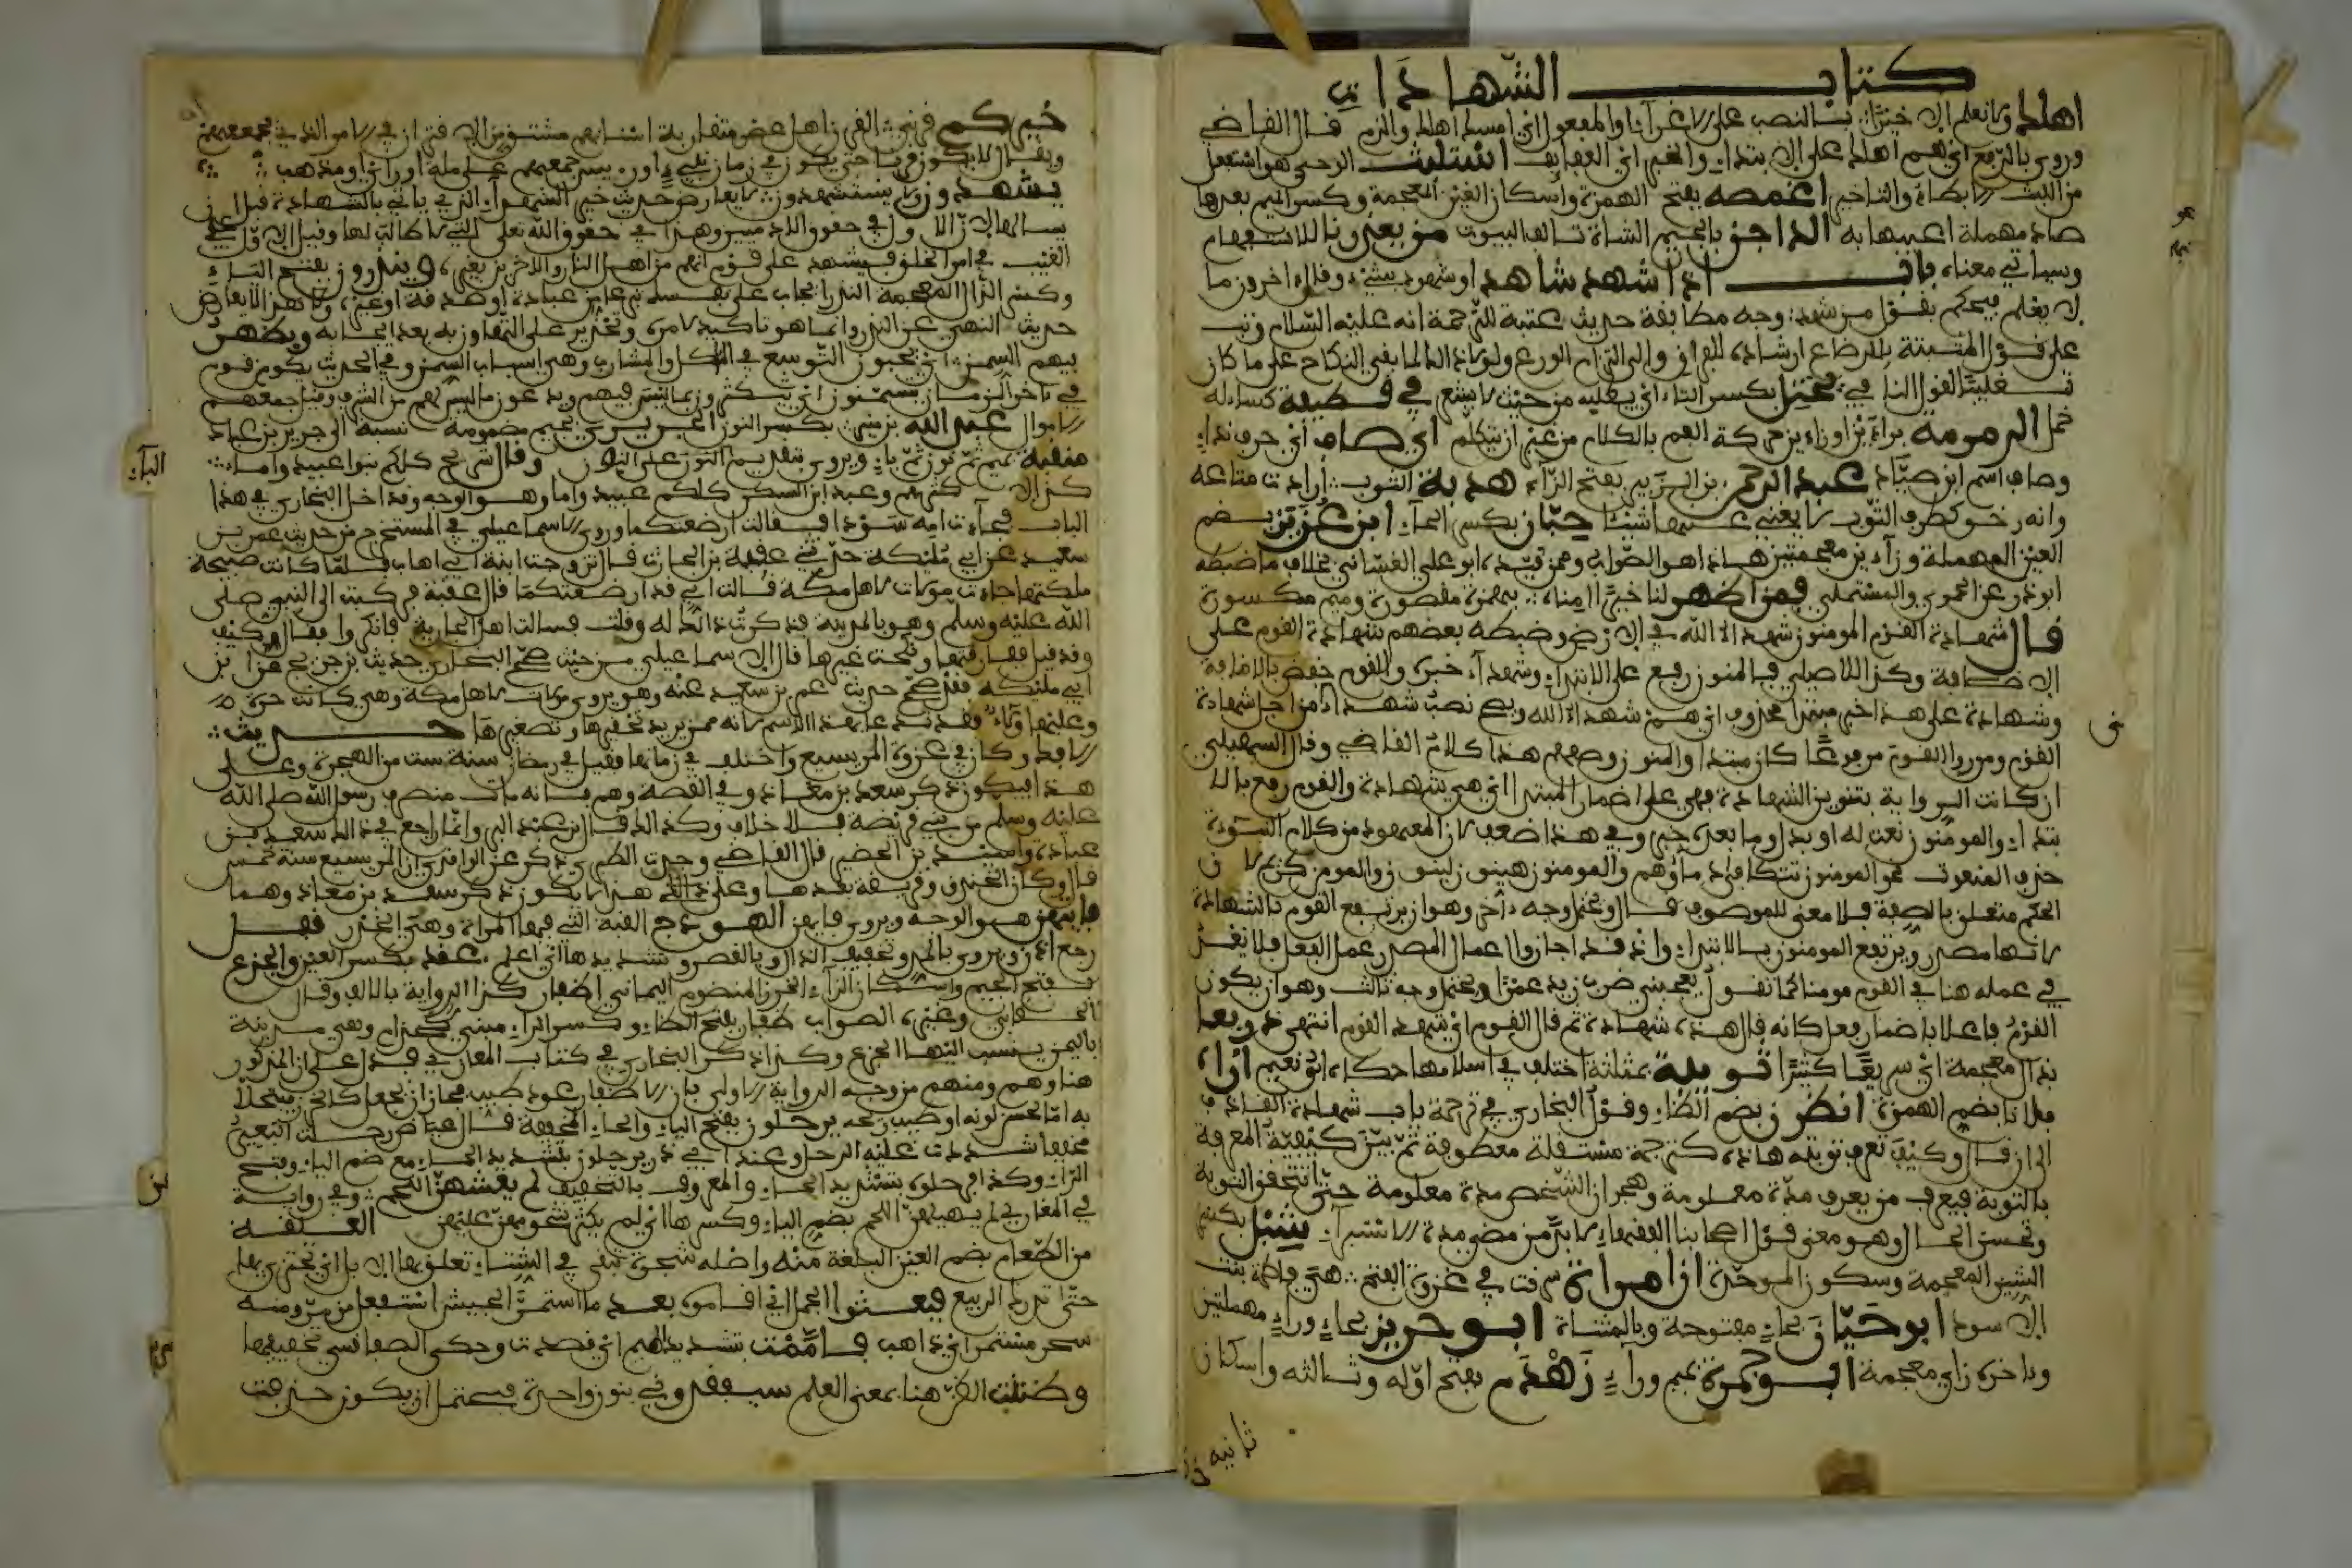 كتاب الشهادات
اهلك ولا نعلم الا خيرًا: بالنصب على الاغراء او المفعول اي امسك اهلك والزم قال القاضي
وروي بالرفع اي هم اهلك على الابتداء والخبر اي العفايف استلبث الوحي هو استفعل
من اللبث الابطاء والتاخير اغمصه بفتح الهمزة واسكان الغين المعجمة وكسر الميم بعدها
صاد مهملة اعيبها به الداجن بالجيم الشاة تالف البيوت من يعذرنا للاستفهام
وسياتي معناه باب اذا شهد شاهد او شهود بشيء وقال اخرون ما
علمنا يحكم بقول من شهد: وجه مطابقة حديث عقبة للترجمة انه عليه السلام رتب
على قول المثبتة بالرضاع ارشاده للفراق والى التزام الورع
تغليبًا لقول النافي: يختل بكسر التاء اي يطلبه من حيث لا يشعر في قطيفة كساء له
خمل الرمرمة براءين او زاءين حركة الفم بالكلام من غير ان يتكلم اي صاف اي حرف نداء
وصاف اسم ابن صياد عبد الرحمن بن الزبير بفتح الزاء هدبة الثوب: ارادت متاعه
وانه رخو كطرف الثوب لا يغني عنها شيئا حبان بكسر الحاء ابن عزيز بضم
العين المهملة وزاءين معجمتين هاذا هو الصواب وممن قيده ابو علي الغساني بخلاف ما ضبطه
ابو ذر عن الحموي والمستملي فمن اظهر لنا خيرًا امناه: بهمزة مقصورة وميم مكسورة
قال شهادة القوم المومنون شهداء الله في الارض وضبطه بعضهم شهادة القوم على
الاضافة وكذا للاصيلي فالمنون رفع على الابتداء وشهداء خبره والقوم خفض بالاضافة
وشهادة على هذا خبر مبتدا محذوف اي هم شهداء الله ويصح نصب شهداء من اجل شهادة
القوم ومن روى القوم مرفوعًا كان مبتدا والمنون وصفهم هذا كلام القاضي وقال السهيلي
ان كانت الرواية بتنوين الشهادة فهي على اضمار المبتدا اي هي شهادة والقوم رفع بالا
بتداء والمومنون نعت له او بدل وما بعده خبر وفي هذا ضعف لان المعهود من كلام النبوءة
حذف المنعوت نحو المومنون تتكافا دماؤهم والمومنون هينون لينون والمومن
الحكم متعلق بالصفة فلا معنى للموصوف قال ويحتمل وجه ءاخر وهو ان يرتفع القوم بالشهادة
لانها مصدر ويرتفع المومنون بالابتداء واذ قد اجازوا اعمال المصدر عمل الفعل فلا
في عمله هنا في القوم مومنا كما تقول يعجبني ضرب زيد عمرًا ويحتمل وجه ثالث وهو ان يكون
القوم فاعلا باضمار فعل كانه قال هذه شهادة ثم قال القوم اي شهد القوم انتهى ذريعا
بذال معجمة اي سريعًا كثيرًا ثويبة بمثلثة اختلف في اسلامها حكاه ابو نعيم اراه
فلانا بضم الهمزة انظرن بضم الظاء وقول البخاري في ترجمة باب شهادة القاذف
الى ان قال وكيف تعرف توبته هاذه كترجمة مستقلة معطوفة ثم بين كيفية المعرفة
بالتوبة فيعرف من يعرف مدة معلومة وهجران الشخص مدة معلومة حتى تتحقق التوبة
وتحسن الحال وهو معنى قول اصحابنا الفقهاء لا بد من مضي مدة الاستبراء شبل بكسر
الشين المعجمة وسكون الموحدة ان امراة سرقت في غزوة الفتح: هي فاطمة بنت
الاسود ابو حيان بحاء مفتوحة وبالمثناة ابو حريز بحاء وراء مهملتين
وءاخره زاي معجمة ابو جمرة بجيم وراء زهدم بفتح اوله وثالثه واسكان
ثانيه
خيركم قرني: القرن اهل عصر متقاربة اسنانهم مشتق من الاقتران في الامر الذي يجمعهم
ويقال لا يكون قرنا حتى يكون في زمان نبي او رييس يجمعهم على ملة او راي او مذهب
يشهدون ولا يستشهدون: لا يعارض حديث خير الشهداء الذي ياتي بالشهادة قبل ان
يسالها لان الاول في حقوق الادميين وهذا في حقوق الله تعلى التي لا طالب لها وقيل الاول في
الغيب في امر الخلق فيشهد على قوم انهم من اهل النار والاخرين بغيره وينذرون بفتح الياء
وكسر الذال المعجمة النذر ايجاب على نفسك تبرعا من عبادة او صدقة او غيره ولا هذا لا يعارض
حديث النهي عن النذر وانما هو تاكيد لامره وتحذير على التهاون به بعد ايجابه ويظهر
فيهم السمن: اي يحبون التوسع في الماكل والمشارب وهي اسباب السمن وفي الحديث يكون قوم
في ءاخر الزمان يتسمنون اي يتكثرون بما ليس فيهم ويدعون ما ليس لهم من الشرف وقيل جمعهم
الاموال عبد الله بن منير: بكسر النون الجريري بجيم مضمومة نسبة الى جرير بن عباد
منقبة بميم ثم نون ثم باء ويروى بتقديم النون على وقال شريح كلكم بنو عبيد واماء:
كذا لا كثرهم وعند ابن السكن كلكم عبيد واماء وهو الوجه وقد ادخل البخاري في هذا
الباب فجاءت امة سوداء فقالت ارضعتكما وروى الاسماعيلي في المستخرج من حديث عمر بن
سعيد عن ابي مليكة حدثني عقبة بن الحارث قال تزوجت ابنة ابي اهاب فلما كانت صبيحة
ملكتها جاءت مولاة لاهل مكة فقالت اني قد ارضعتكما قال عقبة فركبت الى النبي صلى
الله عليه وسلم وهو بالمدينة فذكرت ذالك له وقلت فسالت اهل الجارية فانكروا فقال وكيف
وقد قيل ففارقها ونكحت غيرها قال الاسماعيلي من حيث صحح البخاري حديث بن جريج هذا بن
ابي مليكة فقد صح حديث عمر بن سعيد عنه وهو يروي مولاة لاهل مكة وهي كانت حرة
وعليها ولاء فقد تدعا بهذا الاسم لانه ممن يريد تحقيرها وتصغيرها حديث:
الافك وكان في غزوة المريسيع واختلف في زمانها فقيل في رمضان سنة ست من الهجرة وعلى
هذا فيكون ذكر سعد بن معاذ في القصة وهم فانه مات منصرف رسول الله صلى الله
عليه وسلم من بني قريضة فلا خلاف وكذالك قال بن عبد البر وانما راجع في ذالك سعد بن
عبادة واسيد بن الحضير قال القاضي وحديث الطبري ذكر عن الواقدي ان المريسيع سنة خمس
قال وكان الخندق وقريضة بعدها وعلى ذالك هذا لا يكون ذكر سعد بن معاذ وهما
فايتهن هو الوجه ويروى فايهن الهودج القبة التي فيها المراة وهي الخدر فقفل
رجع اذن ويروى بالمد وتخفيف الذال وبالقصر وتشديدها اي اعلم عقد بكسر العين والجزع
بفتح الجيم واسكان الزاء الخرز المنظوم اليماني اظفار كذا الرواية بالالف وقال
الخطابي وغيره الصواب ظفار بفتح الظاء وكسر الراء مبني كحذام وهي مدينة
باليمن ينسب اليها الجزع وكذا ذكر البخاري في كتاب المغازي فدل على ان المذكور
هنا وهم ومنهم من وجه الرواية الاولى بان الاظفار عود طيب فجاز ان يجعل كالخرز يتحلى
به اما لحسن لونه او طيب ريحه يرحلون بفتح الياء والحاء المخففة قال عياض رحلت البعير
مخففا شددت عليه الرحل وعند ابي ذر يرحلون بتشديد الحاء مع ضم الياء وفتح
الراء وكذا فرحلوه بتشديد الحاء والمعروف بالتخفيف لم يغشهن اللحم: وفي رواية
في المغازي لم يهبلهن اللحم بضم الياء وكسرها اي لم يكثر شحومهن عليهن العلقة
من الطعام بضم العين البلغة منه واصله شجرة تبقى في الشتاء تعلق بها الابل اي تجتزي بها
حتى تدرك الربيع فبعثوا الجمل اي اقاموه بعد ما استمر الجيش استفعل من مر ومنه
سحر مستمر اي ذاهب فاممت بتشديد الميم اي قصدت وحكى الصفاقسي تخفيفها
وظننت الظن هنا بمعنى العلم سيفقدوني بنون واحدة فيحتمل ان يكون حذفت